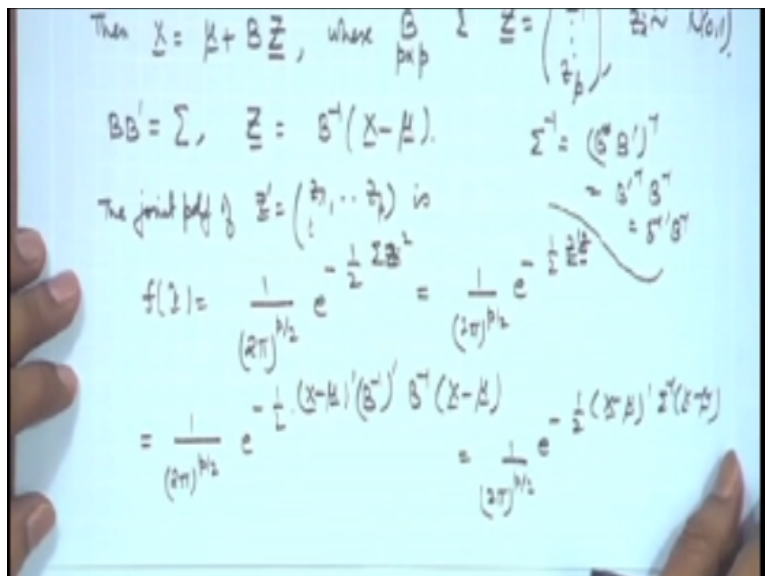 Then X = μ + B Z, where B p×p & Z = ( ⋮ z_p ), Zi ~ N(0,1).
BB' = Σ, Z = B⁻¹(X - μ).
Σ⁻¹ = (B B')⁻¹
= B'⁻¹ B⁻¹
= B⁻¹' B⁻¹
The joint pdf of Z' = (z₁, ... z_p) is
f(z) = 1/(2π)^{p/2} e^{-1/2 Σ zi²} = 1/(2π)^{p/2} e^{-1/2 z'z}
= 1/(2π)^{p/2} e^{-1/2 (x-μ)'(B⁻¹)' B⁻¹ (x-μ)} = 1/(2π)^{p/2} e^{-1/2 (x-μ)' Σ⁻¹ (x-μ)}